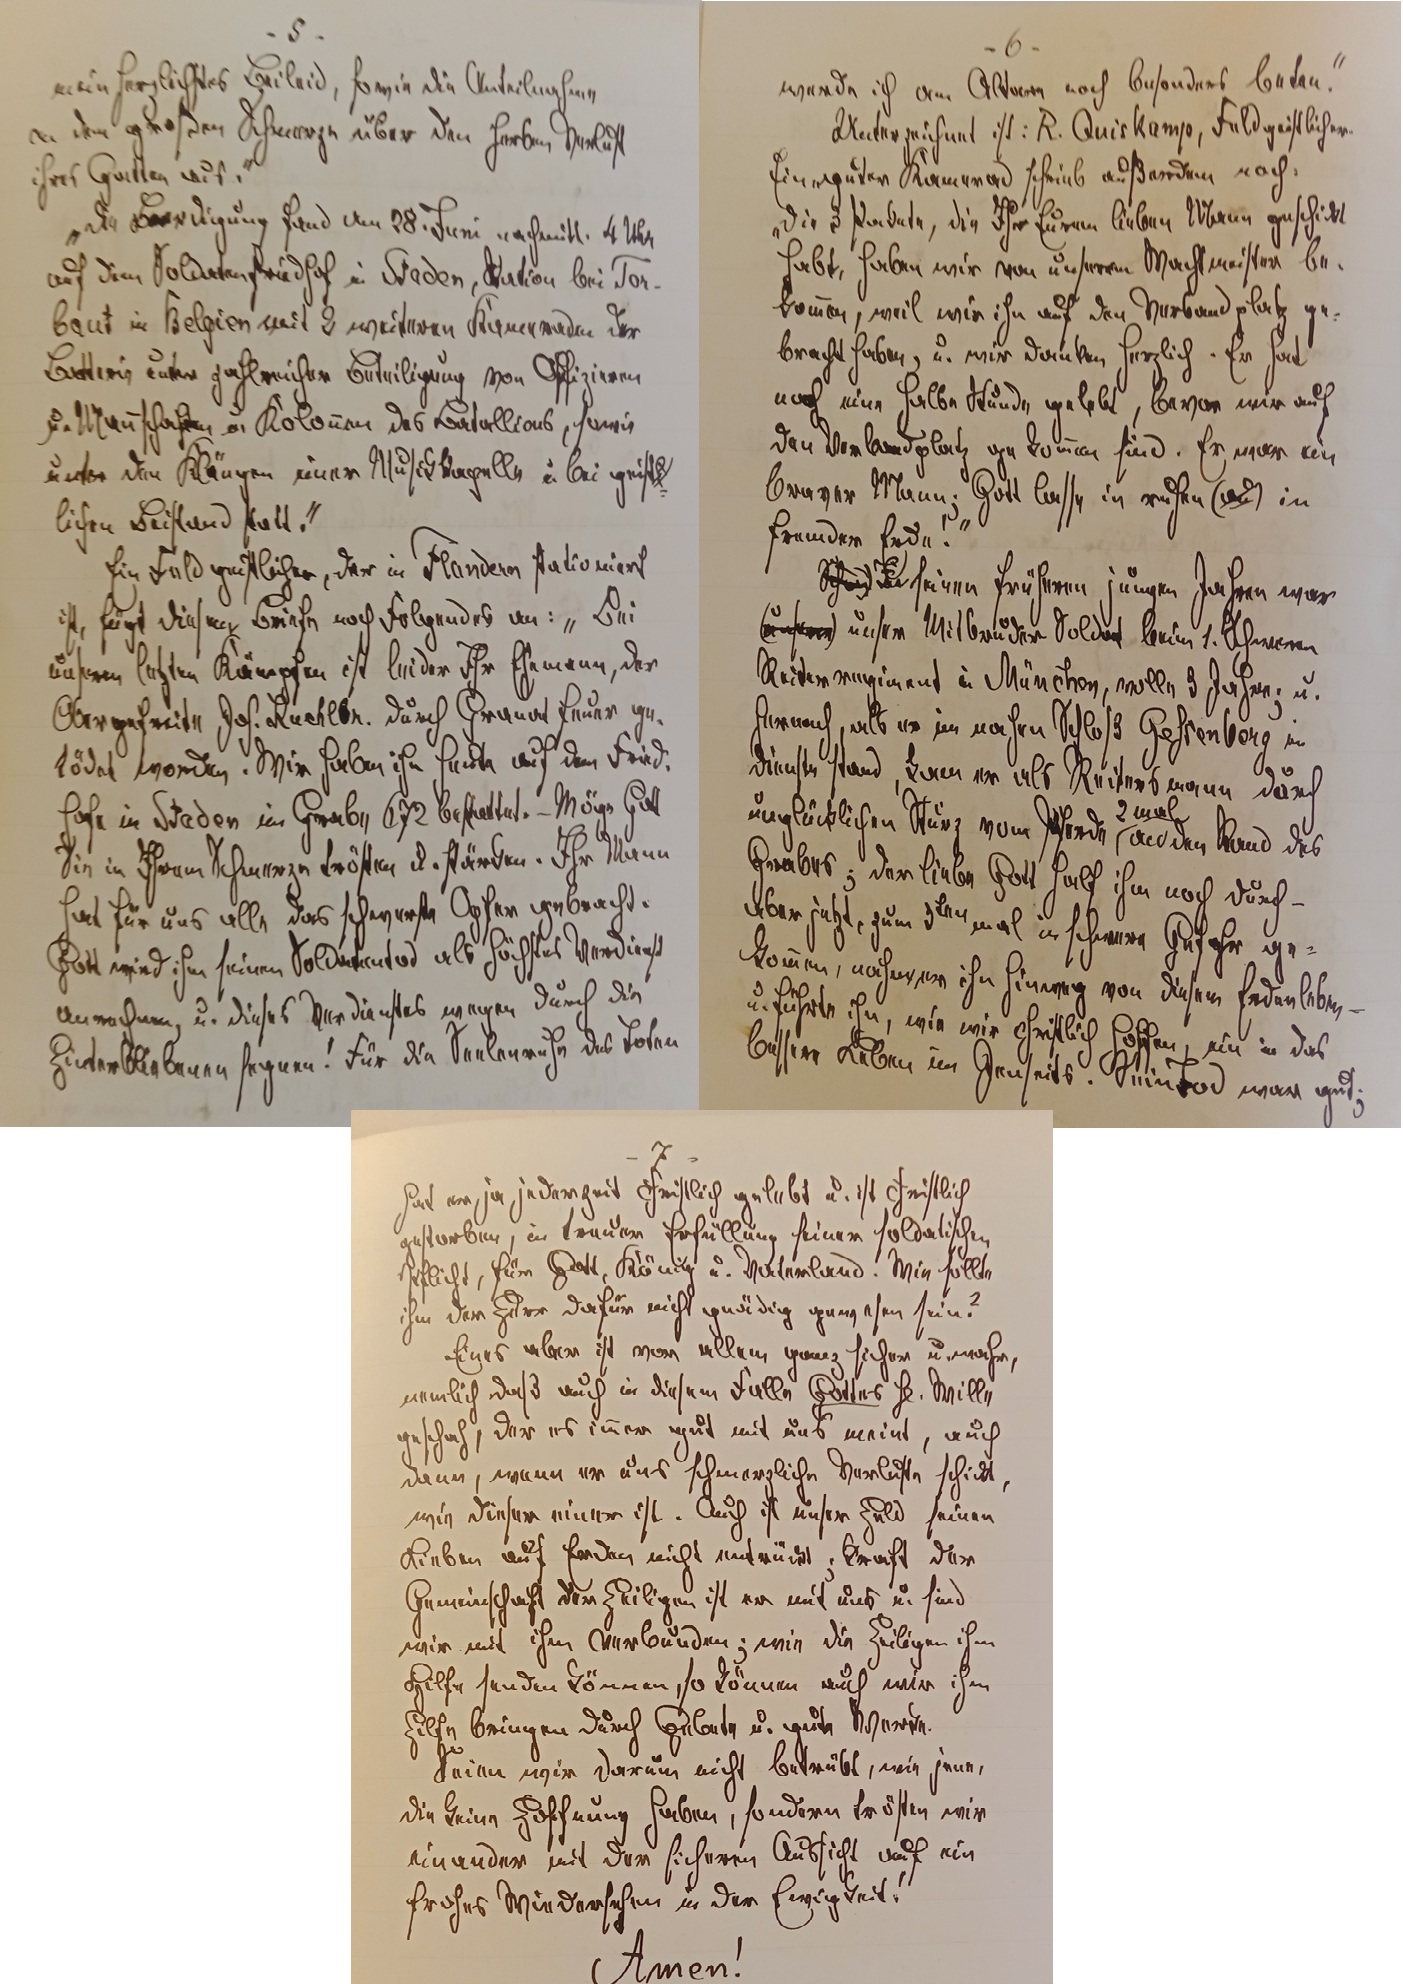 - 5 -
mein herzlichstes Beileid, sowie die Anteilnahme
an dem großen Schmerze über den herben Verlust
ihres Gatten aus."
„Die Beerdigung fand am 28. Juni nachmitt. 4 Uhr
auf dem Soldatenfriedhof in Staden, Station bei Tor-
baut in Belgien mit 2 weiteren Kameraden der
Batterie unter zahlreicher Beteiligung von Offizieren
u. Mannschaften u Kolonnen des Batallions, sowie
unter den Klängen einer Musikkapelle u bei geist-
lichen Beistand statt."
Ein Feldgeistlicher, der in Flandern stationiert
ist, fügt diesem Briefe noch Folgendes an: „Bei
unseren letzten Kämpfen ist leider Ihr Ehemann, der
Obergefreite Jos. durch Granatfeuer ge-
tödet worden. Wir haben ihn heute auf dem Fried-
hofe in Staden im Grabe 672 bestattet. - Möge Gott
Sie in Ihrem Schmerze trösten u. stärken. Ihr Mann
hat für uns alle das schwerste Opfer gebracht.
Gott wird ihm seinen Soldatentod als höchstes Verdienst
anrechnen, u. dieses Verdienstes wegen durch die
Hinterbliebenen segnen! Für die Seelenruhe des Toten
- 6 -
werde ich am Altare noch besonders beten."
Unterzeichnet ist: R. Quiskamp, Feldgeistlicher.
Ein guter Kamerad schrieb außerdem noch:
„Die 3 Pakete, die Ihr Eurem lieben Mann geschickt
habt, haben wir von unserem Wachtmeister be-
kommen, weil wir ihn auf den Verbandplatz ge-
bracht haben, u. wir danken herzlich. Er hat
noch eine halbe Stunde gelebt, bevor wir auf
den Verbandplatz gekommen sind. Er war ein
braver Mann; Gott lasse in ruhen in
fremder Erde!"
In seinen früheren jungen Jahren war
(unser) unser Mitbruder Soldat beim 1. Schweren
Reiterregiment in München, volle 3 Jahre; u.
hernach, als er im nahen Schloß Gessenberg in
Dienste stand, kam er als Reitersmann durch
unglücklichen Sturz vom Pferde 2 mal an den Rand des
Grabes; der liebe Gott half ihm noch durch -
aber jetzt, zum 3ten mal in schwere Gefahr ge-
kommen, nahm er ihn hinweg von diesem Erdenleben -
u. führte ihn, wie wir christlich hoffen, ein in das
bessere Leben im Jenseits. Sein Tod war gut;
- 7 -
hat er ja jederzeit christlich gelebt u. ist christlich
gestorben, in treuer Erfüllung seiner soldatischen
Pflicht, für Gott, König u. Vaterland. Wie sollte
ihm der Herr dafür nicht gnädig gewesen sein?
Eines aber ist vor allem ganz sicher u. wahr,
nemlich daß auch in diesem Falle Gottes hl. Wille
geschah, der es immer gut mit uns meint, auch
dann, wenn er uns schmerzliche Verluste schickt,
wie dieser einer ist. Auch ist unser Held seinen
Lieben auf Erden nicht entrückt; kraft der
Gemeinschaft der Heiligen ist er mit uns u. sind
wir mit ihm verbunden; wie die Heiligen ihm
Hilfe senden können, so können auch wir ihm
Hilfe bringen durch Gebete u. gute Werke.
Seien wir darum nicht betrübt, wie jene,
die keine Hoffnung haben, sondern trösten wir
einander mit der sicheren Aussicht auf ein
frohes Wiedersehen in der Ewigkeit!
Amen!